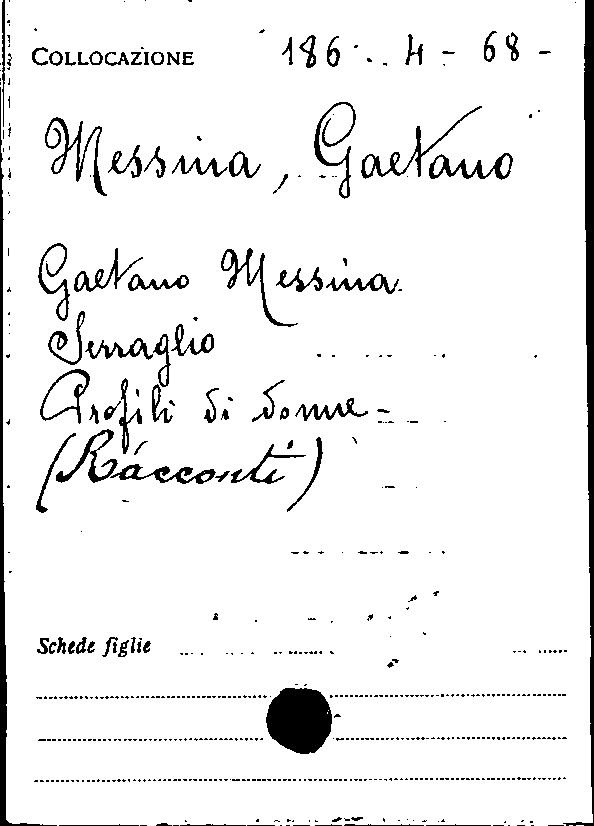 COLLOCAZIONE 186. 4 - 68 -
Messina, Gaetano
Gaetano Messina
Serraglio
Profili di donne -
(Racconti)
Schede figlie